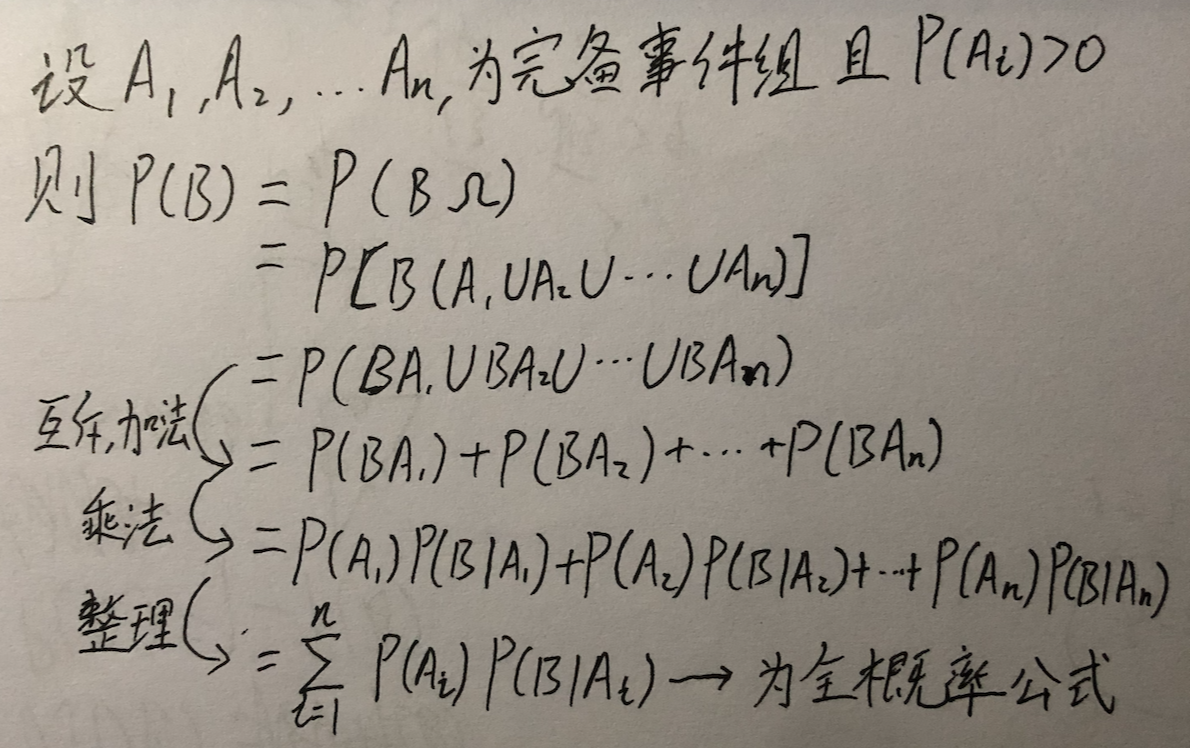 设 A₁,A₂,…Aₙ,为完备事件组 且 P(Aᵢ)>0
则 P(B) = P(BΩ)
= P[B(A₁∪A₂∪…∪Aₙ)]
= P(BA₁∪BA₂∪…∪BAₙ)
互斥,加法 = P(BA₁)+P(BA₂)+…+P(BAₙ)
乘法 = P(A₁)P(B|A₁)+P(A₂)P(B|A₂)+…+P(Aₙ)P(B|Aₙ)
整理 = ∑ⁿᵢ₌₁ P(Aᵢ)P(B|Aᵢ) → 为全概率公式